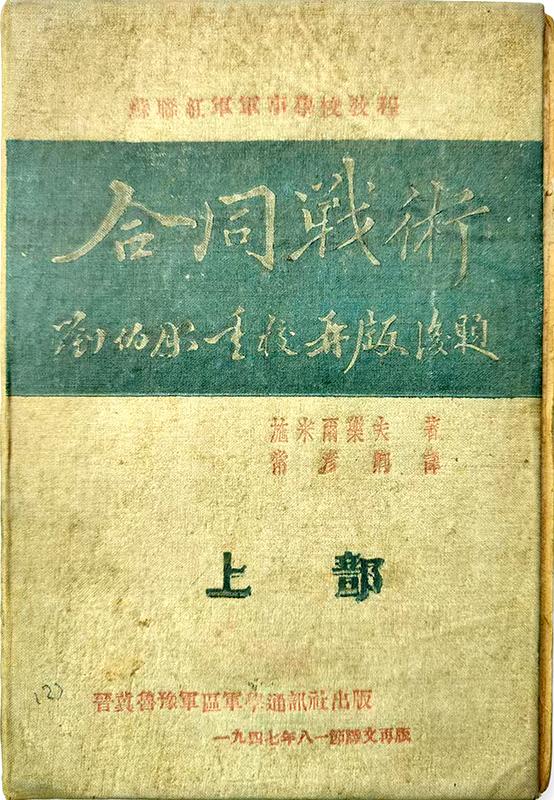 蘇聯紅軍軍事學校教程
合同戰術
劉伯承重校再版後題
施米爾樂夫 著
常彥卿 譯
上部
(2)
晉冀魯豫軍區軍學通訊社出版
一九四七年八一節文再版